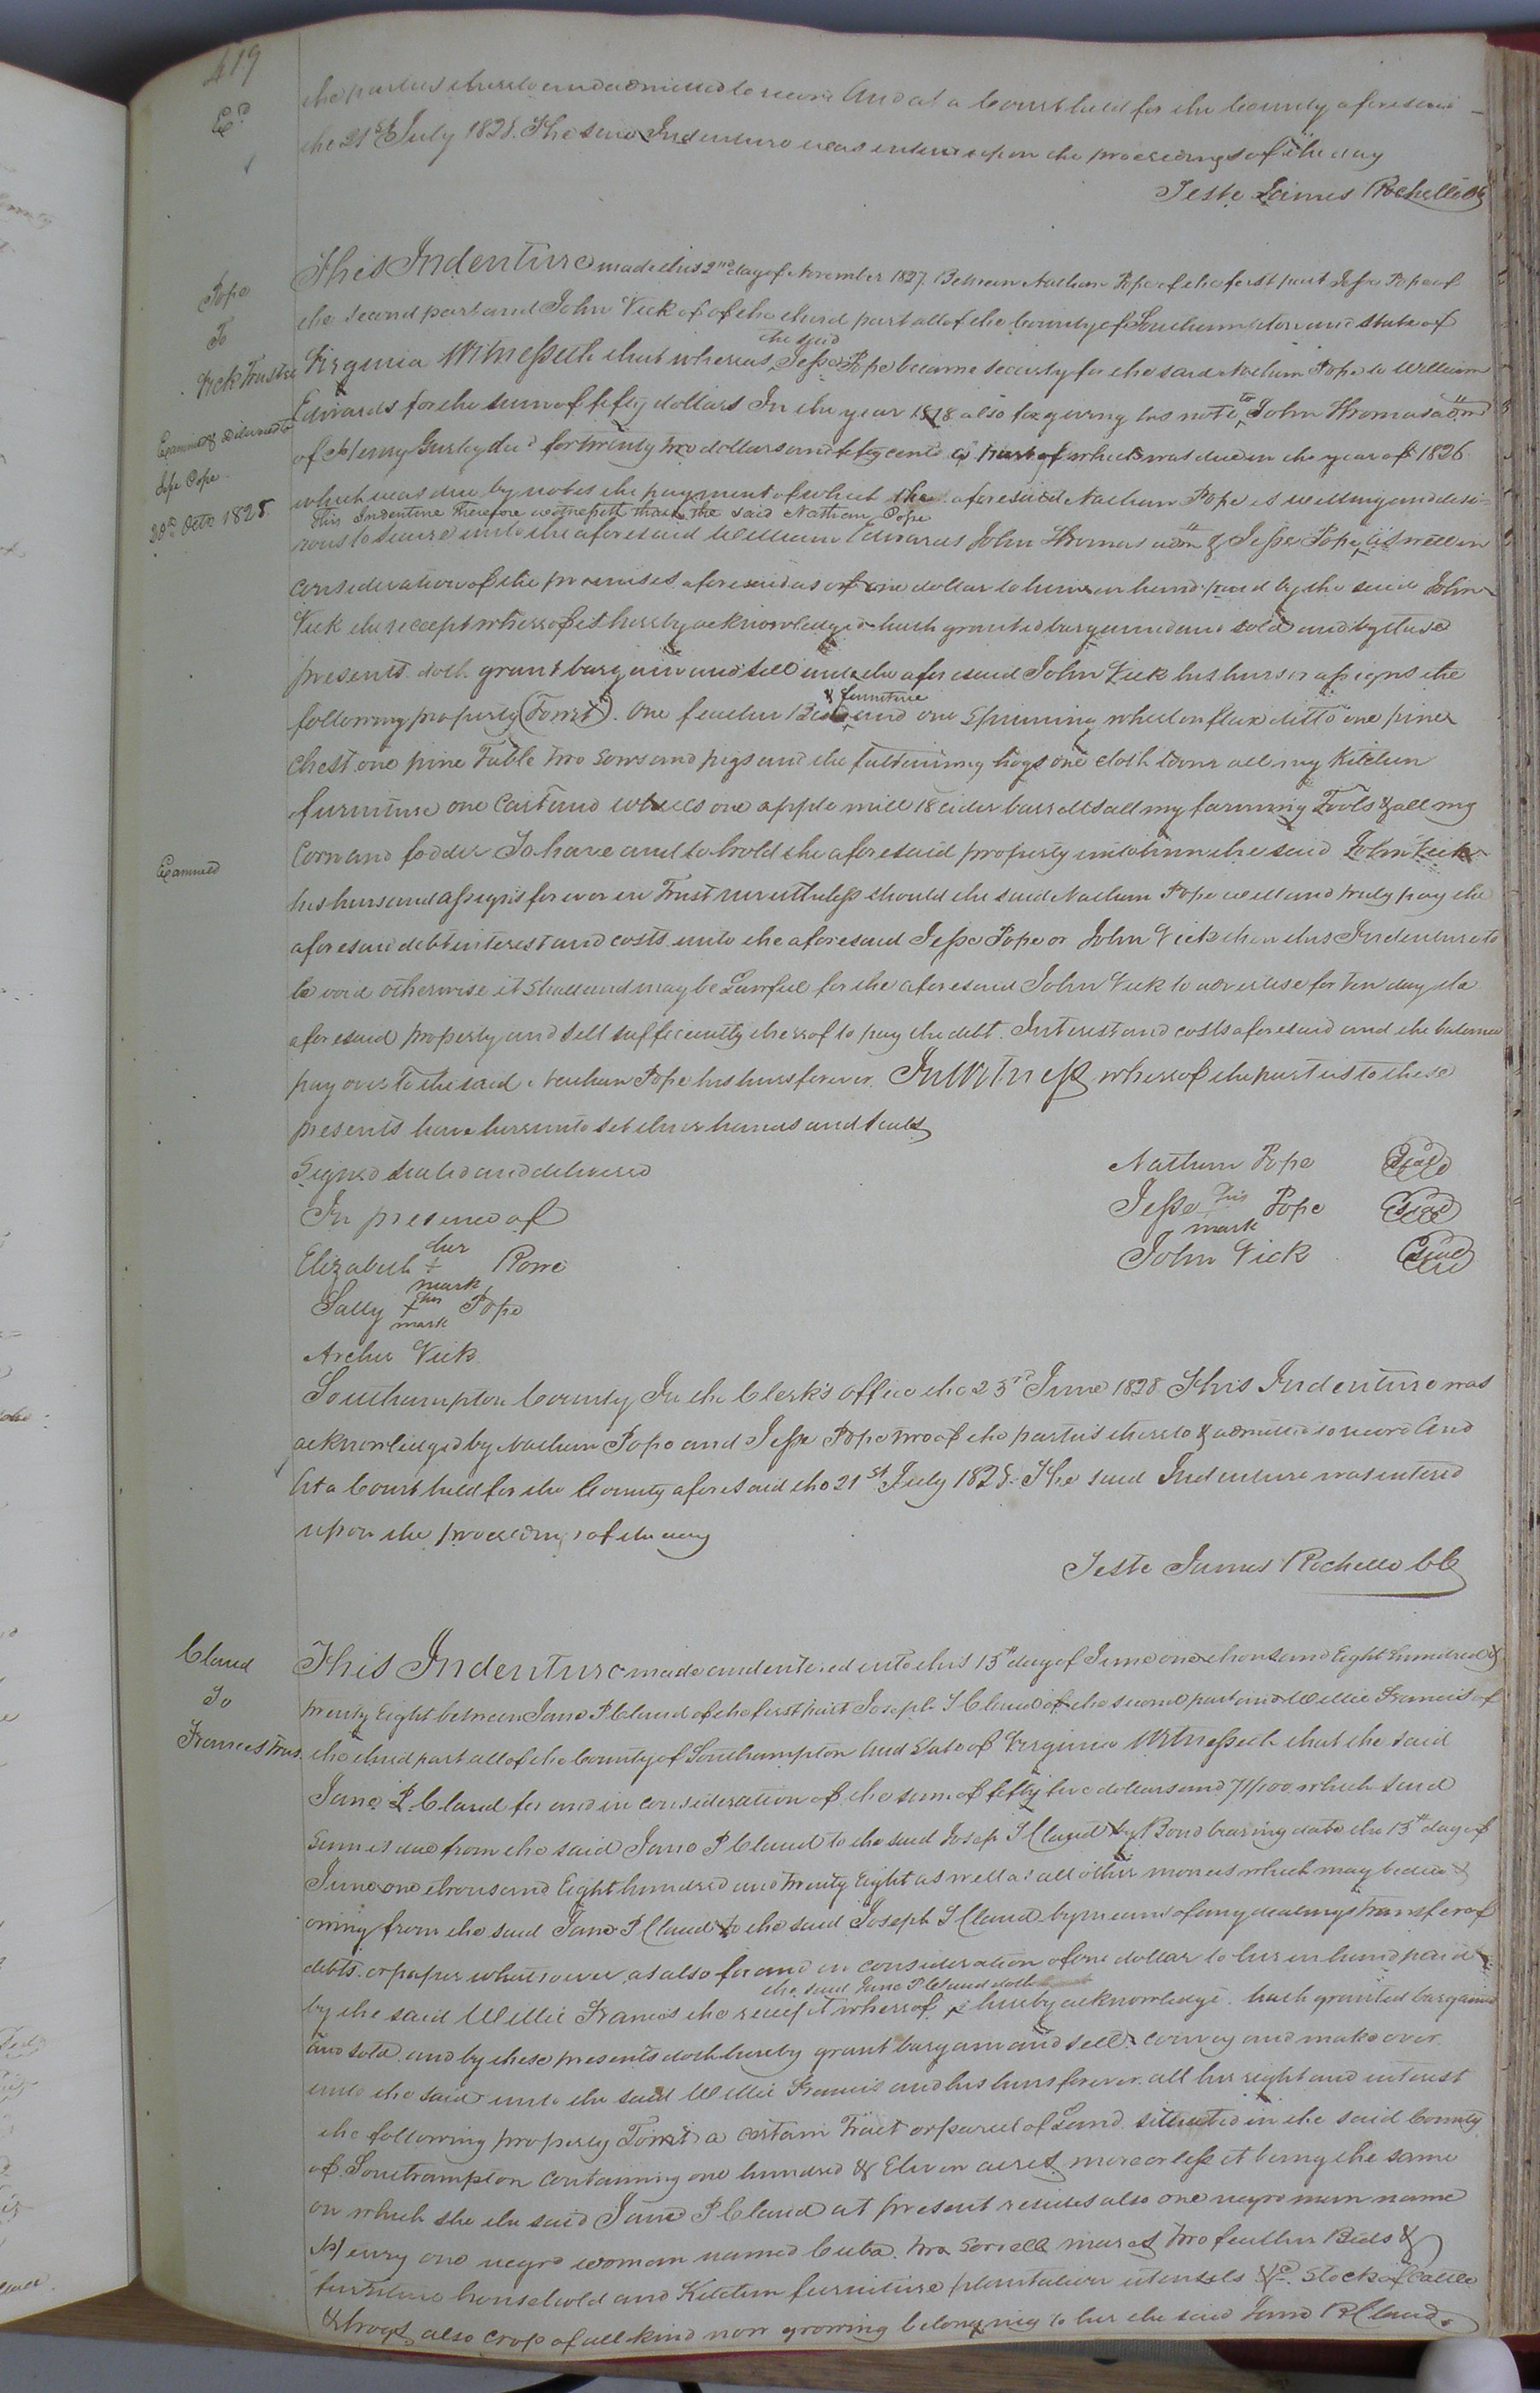 419
Exd
the parties thereto and admitted to record And at a Court held for the County aforesaid
the 21st July 1828. The said Indenture was entered upon the proceedings of the day
Teste James Rochelle
Pope
To
Vick Trustee
Examined & Delivered to
Jesse Pope
20th Octr 1828
This Indenture made this 2nd day of November 1827. Between Nathan Pope of the first part Jesse Pope of
the second part and John Vick of of the third part all of the County of Southampton and State of
Virginia Witnesseth that whereas the said Jesse Pope became security for the said Nathan Pope to William
Edwards for the sum of fifty dollars In the year 1818 also for giving his note to John Thomas adm
of Henry Gurley decd for twenty two dollars and fifty cents a part of which was due in the year of 1826
which was due by notes the payment of which the aforesaid Nathan Pope is willing and desi-
rous to secure unto the aforesaid William Edwards John Thomas adm & Jesse Pope, This Indenture Therefore witnesseth that the said Nathan Pope as well in
consideration of the premises aforesaid as of one dollar to him in hand paid by the said John
Vick the receipt whereof is hereby acknowledged hath granted bargained and sold and by these
presents doth grant bargain and sell unto the aforesaid John Vick his heirs or assigns the
following property (Towit). One feather Bed & furniture and one Spinning wheel on flax ditto one pine
chest one pine Table two sows and pigs and the fattening hogs one cloth loom all my Kitchen
furniture one Cart and wheels one apple mill 18 cider barrells all my farming Tools & all my
Corn and fodder To have and to hold the aforesaid property unto him the said John Vick
Examined
his heirs and assigns forever in Trust nevertheless should the said Nathan Pope well and truly pay the
aforesaid debt interest and costs unto the aforesaid Jesse Pope or John Vick then this Indenture to
be void otherwise it shall and may be Lawful for the aforesaid John Vick to advertise for ten days the
aforesaid property and sell sufficiently thereof to pay the debt. Interest and costs aforesaid and the balance
pay over to the said Nathan Pope his heirs forever. In Witness whereof the parties to these
presents have hereunto set their hands and seals
Signed sealed and delivered
In presence of
Elizabeth her + mark Rowe
Sally her + mark Pope
Archer Vick
Nathan Pope Seal
Jesse his mark Pope Seal
John Vick Seal
Southampton County In the Clerk's office the 23rd June 1828 This Indenture was
acknowledged by Nathan Pope and Jesse Pope two of the parties thereto & admitted to record And
At a Court held for the County aforesaid the 21st July 1828. The said Indenture was entered
upon the proceedings of the day
Teste James Rochelle CC
Claud
To
Frances Trus.
This Indenture made and entered into this 13th day of June one thousand Eight hundred &
twenty Eight between Jane P Claud of the first part Joseph J Claud of the second part and Willie Francis of
the third part all of the County of Southampton And State of Virginia Witnesseth that the said
Jane P Claud for and in consideration of the sum of fifty two dollars and 71/100 which said
sum is due from the said Jane P Claud to the said Joseph J Claud by Bond bearing date the 13th day of
June one thousand Eight hundred and twenty Eight as well as all other monies which may be due &
owing from the said Jane P Claud to the said Joseph J Claud by means of any dealings transfer of
debts or paper whatsoever as also for and in consideration of one dollar to her in hand paid
by the said Willie Francis the receipt whereof the said Jane P Claud doth hereby acknowledge hath granted bargained
and sold and by these presents doth hereby grant bargain and sell convey and make over
unto the said unto the said Willie Francis and his heirs forever all her right and interest
the following property Towit a certain Tract or parcel of Land situated in the said County
of Southampton containing one hundred & Eleven acres more or less it being the same
on which she the said Jane P Claud at present resides also one negro man name
Henry one negro woman named Cuba. two Sorrell mares two feather Beds &
furniture household and Kitchen furniture plantation utensils &c. Stock of Cattle
& hogs also crop of all kind now growing belonging to her the said Jane P Claud